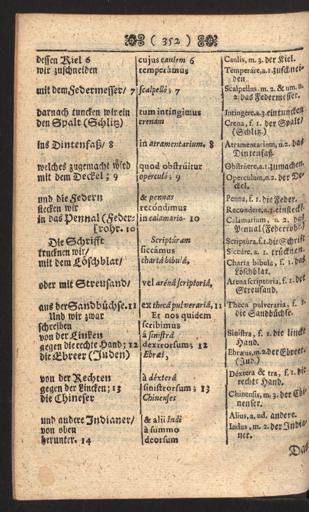 ( 352 )
dessen Kiel 6
wir zuschneiden
mit dem Federmesser/ 7
darnach tuncken wir ein
den Spalt (Schlitz)
ins Dintenfaß/ 8
welches zugemacht wird
mit dem Deckel; 9
und die Federn
stecken wir
in das Pennal (Feder-
rohr. 10
Die Schrifft
trucknen wir/
mit dem Löschblat/
oder mit Streusand/
aus der Sandbüchse. 11
Und wir zwar
schreiben
von der Lincken
gegen die rechte Hand; 12
die Ebreer (Juden)
von der Rechten
gegen der Lincken; 13
die Chineser
und andere Indianer/
von oben
herunter. 14
cujus caulem 6
temperámus
scalpello; 7
tum intingimus
crenam
in atramentarium, 8
quod obstrúitur
operculo; 9
& pennas
recóndimus
in calamario. 10
Scripturam
siccámus
chartâ bibulâ,
vel arenâ scriptoriâ,
ex thecâ pulverariâ, 11
Et nos quidem
scribimus
à sinistrâ
dextrorsum; 12
Ebræi,
à déxterâ
sinistrorsum; 13
Chinenses
& alii Indi
à summo
deorsum
Caulis, m. 3. der Kiel.
Temperáre, a. 1. zuschnei-
den.
Scalpellus, m. 2. & um, n.
2. das Federmesser.
Intingere, a. 3. eintuncken
Crena, f. 1. der Spalt/
(Schlitz)
Atramentarium, n. 2. das
Dintenfaß.
Obstrúere, a. 3. zumachen.
Operculum, n. 2. der De-
ckel.
Penna, f. 1. die Feder.
Recondere, a. 3. einsteck-
Calamarium, n. 2. das
Pennal (Federrohr.)
Scriptura, f. 1. die Schrift
Siccare, a. 1. trucknen.
Charta bibula, f. 1. das
Löschblat.
Arena scriptoria, f. 1. der
Streusand.
Theca pulveraria, f. 1.
die Sandbüchse.
Sinistra, f. 1. die lincke
Hand.
Ebræus, m. 2. der Ebreer,
(Jud.)
Déxtera & tra, f. 1. die
rechte Hand.
Chinensis, m. 3. der Chi-
nenser.
Alius, a, ud. andere.
Indus, m. 2. der India-
ner.